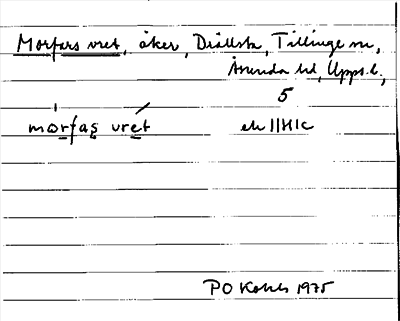 Morfars vret, åker, Drällsta, Tillinge sn,
Åsunda hd, Upps.l.,
5
morfas vret ek 11H1c
PO Kohls 1975